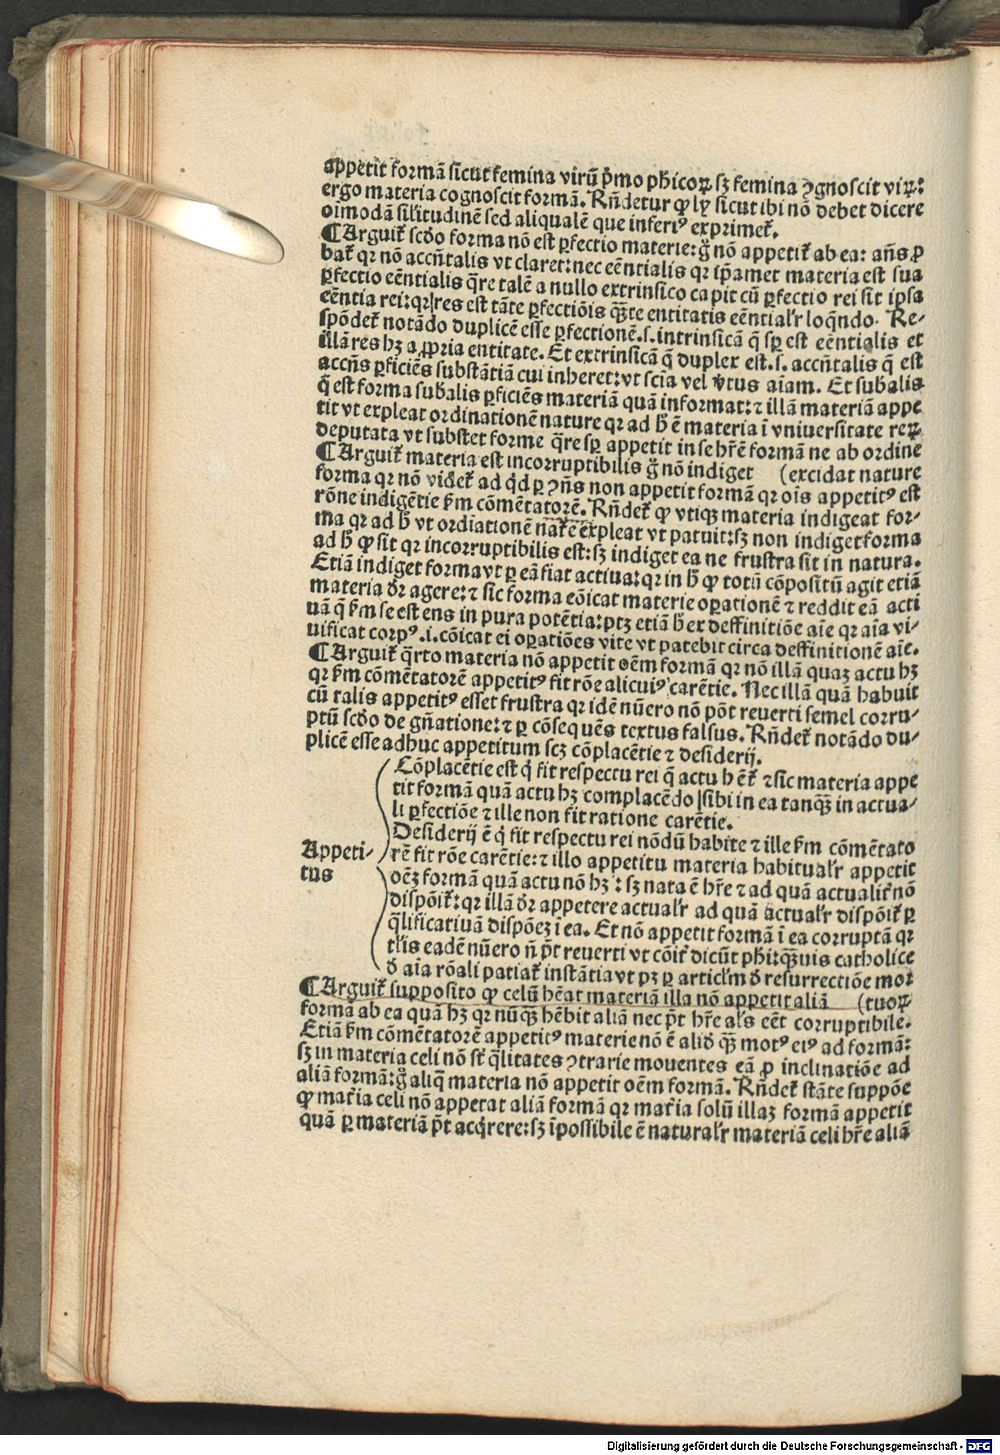 appetit formã sicut femina virũ p̃mo phicoꝝ sꝫ femina ꝯgnoscit viꝝ:
ergo materia cognoscit formã. Rñdetur ꝙ ly sicut ibi nõ debet dicere
oimodã sil'itudinẽ sed aliqualẽ que inferiꝰ exprimet̃.
¶Arguit̃ scd̃o forma nõ est ꝑfectio materie: g̃ nõ appetit̃ ab ea: añs ꝓ
bat̃ qꝛ nõ accñtalis vt claret: nec eẽntialis qꝛ ip̃amet materia est sua
ꝑfectio eẽntialis q̃re talẽ a nullo extrinsico capit cũ ꝑfectio rei sit ipsa
eẽntia rei: qꝛ res est tãte ꝑfectiõis q̃ꝫte entitatis eẽntial'r loq̃ndo. Re-
spõdet̃ notãdo duplicẽ esse ꝑfectionẽ .s. intrinsicã q̃ sꝑ est eẽntialis et
illã res hꝫ a ꝓpria entitate. Et extrinsicã q̃ duplex est .s. accñtalis q̃ est
accñs ꝑficiẽs substãtiã cui inheret: vt scia vel v̾tus aĩam. Et sub̃alis
q̃ est forma sub̃alis ꝑficiẽs materiã quã informat: ⁊ illã materiã appe
tit vt expleat ordinationẽ nature qꝛ ad h̃ ẽ materia ĩ vniuersitate reꝝ
deputata vt substet forme q̃re sꝑ appetit in se hr̃e formã ne ab ordine
¶Arguit̃ materia est incorruptibilis g̃ nõ indiget (excidat nature
forma qꝛ nõ videt̃ ad qd̃ ꝑ ꝯñs non appetit formã qꝛ oĩs appetitꝰ est
rõne indigẽtie fm̃ cõmẽtatorẽ. Rñdet̃ ꝙ vtiqꝫ materia indigeat for-
ma qꝛ ad h̃ vt ordiationẽ nat̃e expleat vt patuit: sꝫ non indiget forma
ad h̃ ꝙ sit qꝛ incorruptibilis est: sꝫ indiget ea ne frustra sit in natura.
Etiã indiget forma vt ꝑ eã fiat actiua: qꝛ in h̃ ꝙ totũ cõpositũ agit etiã
materia dr̃ agere: ⁊ sic forma cõicat materie oꝑationẽ ⁊ reddit eã acti
uã q̃ fm̃ se est ens in pura potẽtia: ptꝫ etiã h̃ ex deffinitiõe aĩe qꝛ aĩa vi-
uificat corpꝰ .i. cõicat ei oꝑatiões vite vt patebit circa deffinitionẽ aĩe.
¶Arguit̃ q̃rto materia nõ appetit oẽm formã qꝛ nõ illã quaꝫ actu hꝫ
qꝛ fm̃ cõmẽtatorẽ appetitꝰ fit rõe alicuiꝰ carẽtie. Nec illã quã habuit
cũ talis appetitꝰ esset frustra qꝛ idẽ nũero nõ põt reuerti semel corru-
ptũ scd̃o de gñatione: ⁊ ꝑ cõsequẽs textus falsus. Rñdet̃ notãdo du-
plicẽ esse adhuc appetitum scꝫ cõplacẽtie ⁊ desiderij.
Cõplacẽtie est q̃ fit respectu rei q̃ actu h̃ et̃ ⁊ sic materia appe
tit formã quã actu hꝫ complacẽdo sibi in ea tanq̃ꝫ in actua-
li ꝑfectiõe ⁊ ille non fit ratione carẽtie.
Desiderij ẽ q̃ fit respectu rei nõdũ habite ⁊ ille fm̃ cõmẽtato
Appeti-
tus
rẽ fit rõe carẽtie: ⁊ illo appetitu materia habitual'r appetit
oẽꝫ formã quã actu nõ hꝫ: sꝫ nata ẽ hr̃e ⁊ ad quã actualit̃ nõ
dispõit̃: qꝛ illã dr̃ appetere actual'r ad quã actual'r dispõit̃ ꝑ
q̃lificatiuã dispõeꝫ i ea. Et nõ appetit formã ĩ ea corruptã qꝛ
tl'is eadẽ nũero ñ p̃t reuerti vt cõit̃ dicũt phi: q̃ꝫuis catholice
d̃ aĩa rõali patiat̃ instãtia vt pꝫ ꝑ articl'm d̃ resurrectiõe moꝛ
¶Arguit̃ supposito ꝙ celũ hẽat materiã illa nõ appetit aliã (tuoꝝ
formã ab ea quã hꝫ qꝛ nũq̃ꝫ hẽbit aliã nec p̃t hr̃e al's eẽt corruptibile.
Etiã fm̃ cõmẽtatorẽ appetitꝰ materie nõ ẽ alid̃ q̃ꝫ motꝰ eiꝰ ad formã:
sꝫ in materia celi nõ st̃ q̃litates ꝯtrarie mouentes eã ꝓ inclinatiõe ad
aliã formã: g̃ aliq̃ materia nõ appetit oẽm formã. Rñdet̃ stãte suppõe
ꝙ mat̃ia celi nõ appetat aliã formã qꝛ mat̃ia solũ illaꝫ formã appetit
quã ꝑ materiã p̃t acq̃rere: sꝫ ĩpossibile ẽ natural'r materiã celi hr̃e aliã
Digitalisierung gefördert durch die Deutsche Forschungsgemeinschaft - DFG